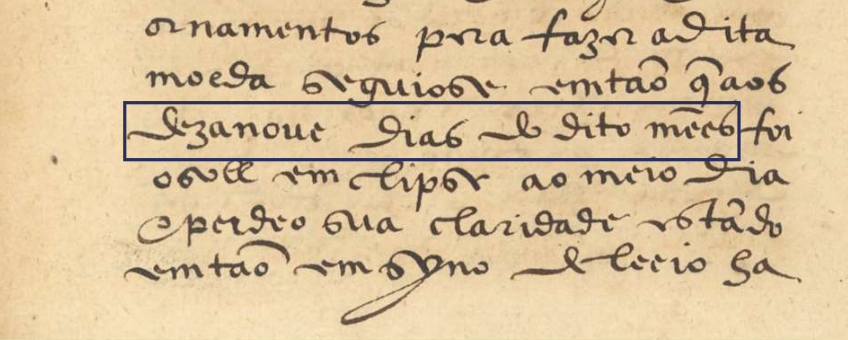 ornamentos pera fazer adita
moeda seguiose emtaõ q̃ aos
dezanoue dias do dito mẽes foi
osoll em clipse ao meio dia
e perdeo sua claridade estãdo
emtaõ em syno de leeio ha